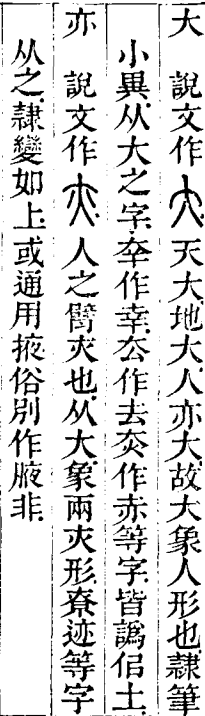 大 說文作𠘲天大地大人亦大故大象人形也隸筆
小異从大之字㚔作幸厺作去烾作赤等字皆譌侣土
亦 說文作夾人之臂亦也从大象兩亦形奔迹等字
从之隸變如上或通用掖俗別作腋非